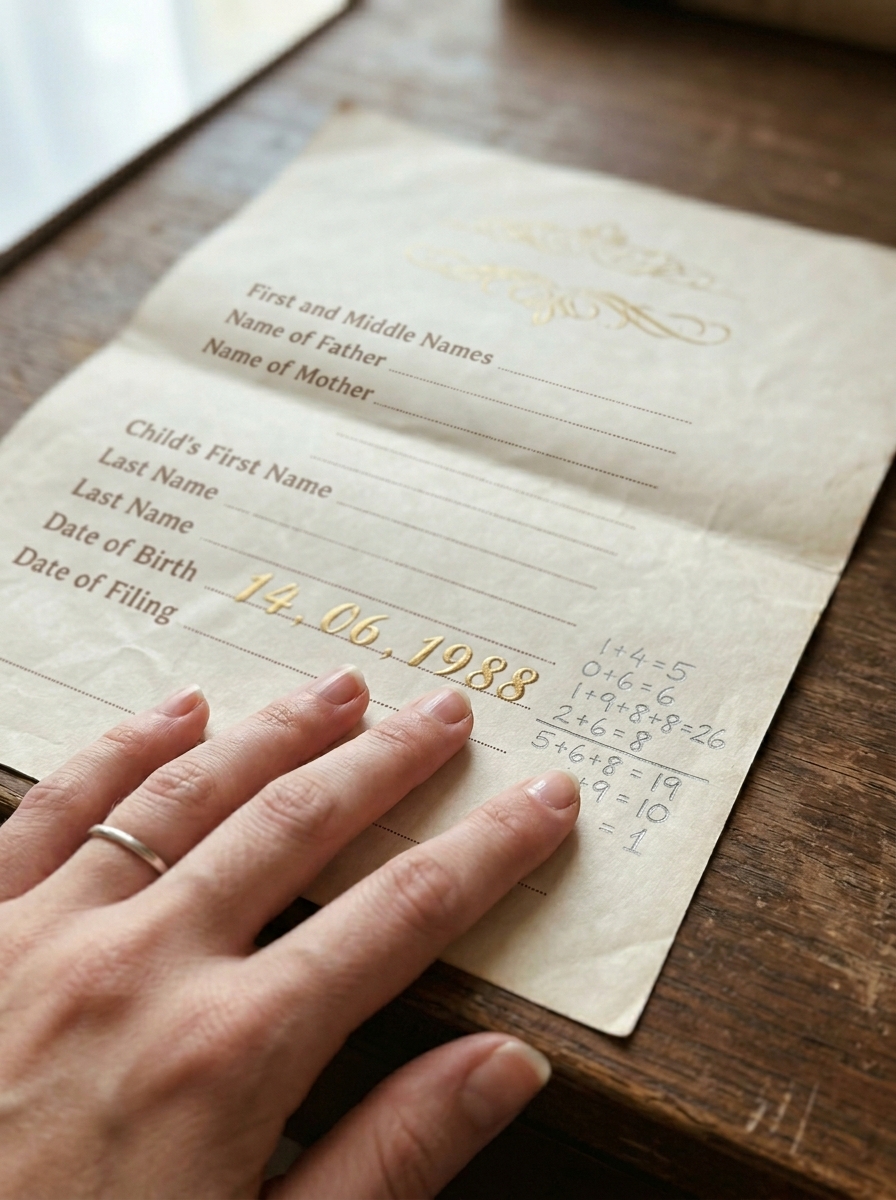 First and Middle Names
Name of Father
Name of Mother
Child's First Name
Last Name
Last Name
Date of Birth
Date of Filing
14.06.1988
1+4=5
0+6=6
1+9+8+8=26
2+6=8
5+6+8=19
+9=10
=1